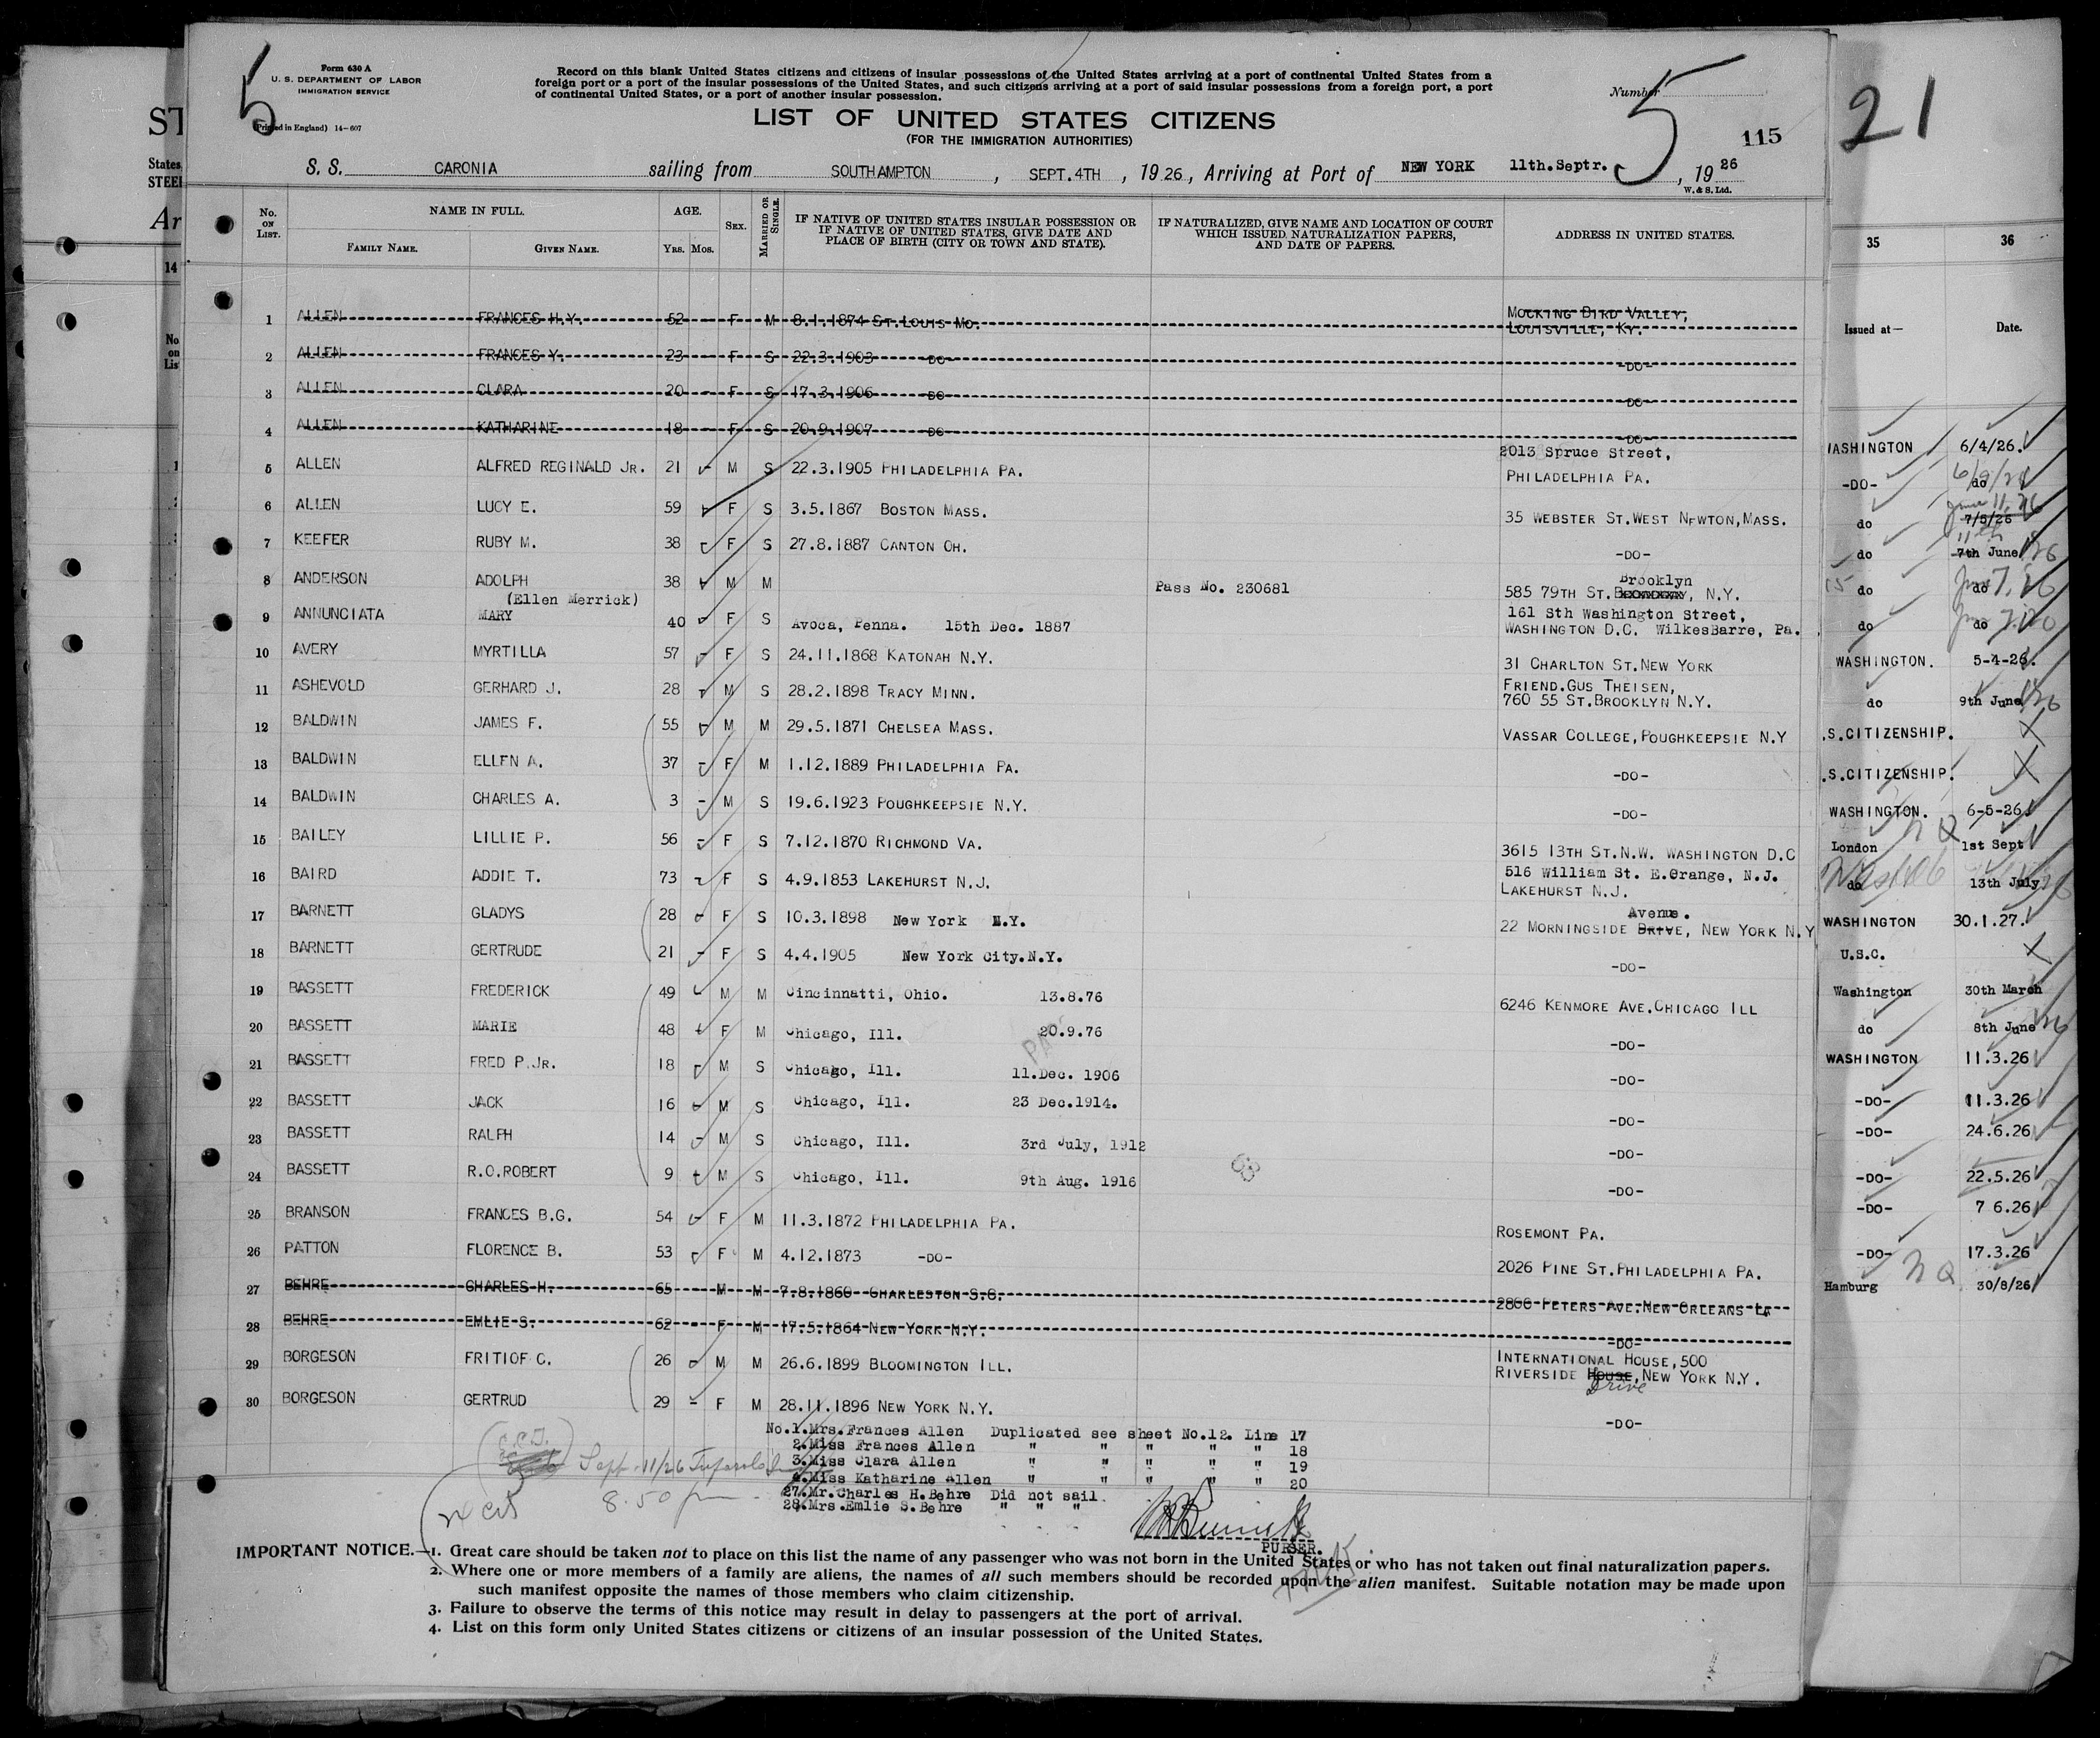 5
Form 630 A
U. S. DEPARTMENT OF LABOR
IMMIGRATION SERVICE
(Printed in England) 14-607
Record on this blank United States citizens and citizens of insular possessions of the United States arriving at a port of continental United States from a
foreign port or a port of the insular possessions of the United States, and such citizens arriving at a port of said insular possessions from a foreign port, a port
of continental United States, or a port of another insular possession.
Number 5
115
21
LIST OF UNITED STATES CITIZENS
(FOR THE IMMIGRATION AUTHORITIES)
S. S. CARONIA sailing from SOUTHAMPTON, SEPT. 4TH, 1926, Arriving at Port of NEW YORK 11th. Septr., 1926
W. & S. Ltd.
No. ON LIST. NAME IN FULL. FAMILY NAME. GIVEN NAME. AGE. YRS. MOS. SEX. MARRIED OR SINGLE. IF NATIVE OF UNITED STATES INSULAR POSSESSION OR IF NATIVE OF UNITED STATES, GIVE DATE AND PLACE OF BIRTH (CITY OR TOWN AND STATE). IF NATURALIZED, GIVE NAME AND LOCATION OF COURT WHICH ISSUED NATURALIZATION PAPERS, AND DATE OF PAPERS. ADDRESS IN UNITED STATES.
1 ALLEN FRANCES H.Y. 52 - F M 8.1.1874 ST. LOUIS MO. MOCKING BIRD VALLEY, LOUISVILLE, KY.
2 ALLEN FRANCES Y. 23 - F S 22.3.1903 -DO- -DO-
3 ALLEN CLARA 20 - F S 17.3.1906 -DO- -DO-
4 ALLEN KATHARINE 18 - F S 20.9.1907 -DO- -DO-
5 ALLEN ALFRED REGINALD JR. 21 - M S 22.3.1905 PHILADELPHIA PA. 2013 Spruce Street, PHILADELPHIA PA.
6 ALLEN LUCY E. 59 - F S 3.5.1867 BOSTON MASS. 35 WEBSTER ST. WEST NEWTON, MASS.
7 KEEFER RUBY M. 38 - F S 27.8.1887 CANTON OH. -DO-
8 ANDERSON ADOLPH 38 - M M Pass No. 230681 585 79TH ST. Brooklyn, N.Y.
9 ANNUNCIATA (Ellen Merrick) MARY 40 - F S Avoca, Penna. 15th Dec. 1887 161 Sth Washington Street, WASHINGTON D.C. WilkesBarre, Pa.
10 AVERY MYRTILLA 57 - F S 24.11.1868 KATONAH N.Y. 31 CHARLTON ST. NEW YORK
11 ASHEVOLD GERHARD J. 28 - M S 28.2.1898 TRACY MINN. FRIEND. GUS THEISEN, 760 55 ST. BROOKLYN N.Y.
12 BALDWIN JAMES F. 55 - M M 29.5.1871 CHELSEA MASS. VASSAR COLLEGE, POUGHKEEPSIE N.Y
13 BALDWIN ELLEN A. 37 - F M 1.12.1889 PHILADELPHIA PA. -DO-
14 BALDWIN CHARLES A. 3 - M S 19.6.1923 POUGHKEEPSIE N.Y. -DO-
15 BAILEY LILLIE P. 56 - F S 7.12.1870 RICHMOND VA. 3615 13TH ST. N.W. WASHINGTON D.C
16 BAIRD ADDIE T. 73 - F S 4.9.1853 LAKEHURST N.J. 516 William St. E. Orange, N.J. LAKEHURST N.J.
17 BARNETT GLADYS 28 - F S 10.3.1898 New York N.Y. 22 MORNINGSIDE DRIVE Avenue., NEW YORK N.Y
18 BARNETT GERTRUDE 21 - F S 4.4.1905 New York City. N.Y. -DO-
19 BASSETT FREDERICK 49 - M M Cincinnatti, Ohio. 13.8.76 6246 KENMORE AVE. CHICAGO ILL
20 BASSETT MARIE 48 - F M Chicago, Ill. 20.9.76 -DO-
21 BASSETT FRED P. JR. 18 - M S Chicago, Ill. 11. Dec. 1906 -DO-
22 BASSETT JACK 16 - M S Chicago, Ill. 23 Dec. 1914. -DO-
23 BASSETT RALPH 14 - M S Chicago, Ill. 3rd July, 1912 -DO-
24 BASSETT R.O. ROBERT 9 - M S Chicago, Ill. 9th Aug. 1916 -DO-
25 BRANSON FRANCES B.G. 54 - F M 11.3.1872 PHILADELPHIA PA. ROSEMONT PA.
26 PATTON FLORENCE B. 53 - F M 4.12.1873 -DO- 2026 PINE ST. PHILADELPHIA PA.
27 BEHRE CHARLES H. 65 - M M 7.8.1860 CHARLESTON S.C. 2800 PETERS AVE. NEW ORLEANS LA
28 BEHRE EMLIE S. 62 - F M 17.5.1864 NEW YORK N.Y. -DO-
29 BORGESON FRITIOF C. 26 - M M 26.6.1899 BLOOMINGTON ILL. INTERNATIONAL HOUSE, 500 RIVERSIDE HOUSE Drive, NEW YORK N.Y.
30 BORGESON GERTRUD 29 - F M 28.11.1896 NEW YORK N.Y. -DO-
No. 1. Mrs. Frances Allen Duplicated see sheet No. 12. Line 17
2. Miss Frances Allen " " " " " 18
3. Miss Clara Allen " " " " " 19
4. Miss Katharine Allen " " " " " 20
27. Mr. Charles H. Behre Did not sail.
28. Mrs. Emlie S. Behre " " "
Sept. 11/26
8.50 pm
PURSER.
IMPORTANT NOTICE.—1. Great care should be taken not to place on this list the name of any passenger who was not born in the United States or who has not taken out final naturalization papers.
2. Where one or more members of a family are aliens, the names of all such members should be recorded upon the alien manifest. Suitable notation may be made upon
such manifest opposite the names of those members who claim citizenship.
3. Failure to observe the terms of this notice may result in delay to passengers at the port of arrival.
4. List on this form only United States citizens or citizens of an insular possession of the United States.
ST
States
STEE
Ar
14
No
on
Lis
35 36
Issued at— Date.
WASHINGTON 6/4/26.
-DO- do
do 7/5/26 June 11, 26
do 7th June 11th 26
do do June 7, 26
do do
WASHINGTON. 5-4-26.
do 9th June 26
.S. CITIZENSHIP. X
.S. CITIZENSHIP. X
WASHINGTON. 6-5-26.
London 1st Sept
do 13th July
WASHINGTON 30.1.27.
U.S.C. X
Washington 30th March
do 8th June 26
WASHINGTON 11.3.26
-DO- 11.3.26
-DO- 24.6.26
-DO- 22.5.26
-DO- 7 6.26
-DO- 17.3.26
Hamburg 30/8/26